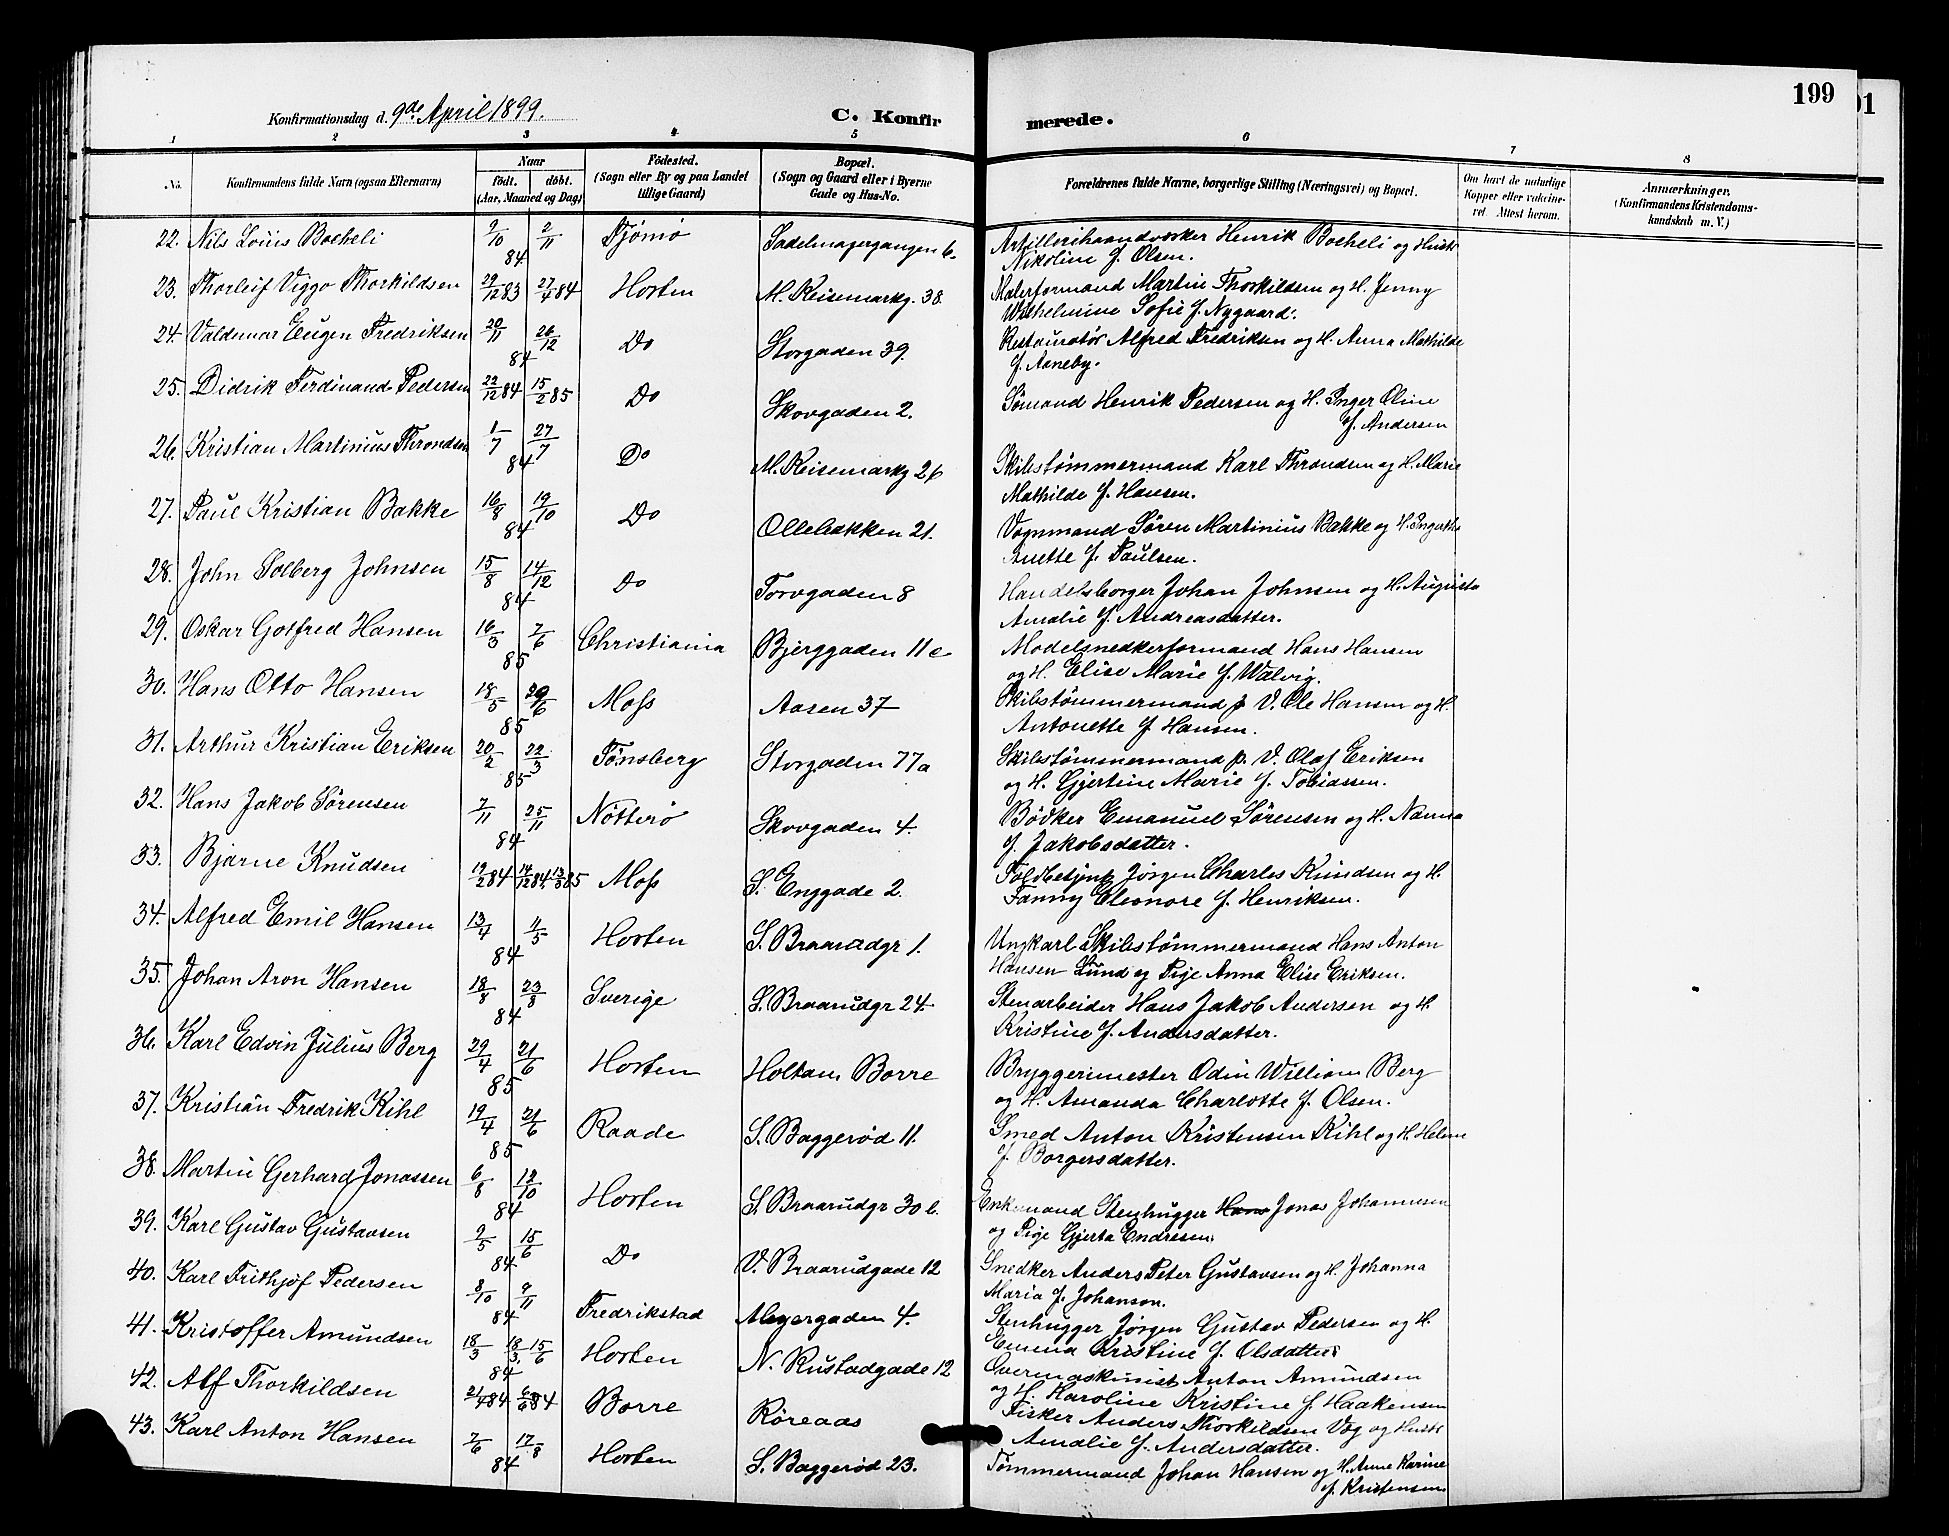 199
01
Konfirmationsdag d. 9de April 1899.
C. Konfir merede.
1 2 3 4 5 6 7 8
No. Konfirmandens fulde Navn (ogsaa Efternavn) Naar födt. döbt. (Aar, Maaned og Dag) Födested. (Sogn eller By og paa Landet tillige Gaard) Bopæl. (Sogn og Gaard eller i Byerne Gade og Hus-No. Forældrenes fulde Navne, borgerlige Stilling (Næringsvei) og Bopæl. Om havt de naturlige Kopper eller vaccineret. Attest herom. Anmærkninger. (Konfirmandens Kristendomskundskab m. V.)
22. Nils Louis Bocheli 9/10 2/11 84 Tjömö Sadelmagergangen 6. Artillerihaandværker Henrik Bocheli og Hustr
Nikoline f. Olsen.
23. Thorleif Viggo Thorkildsen 29/12 83 27/4 84 Horten M. Keisemarkg. 38. Malerformand Martin Thorkildsen og H. Jenny
Wilhelmine Sofie f. Nygaard.
24. Valdemar Eugen Fredriksen 20/11 26/12 84 Do Storgaden 39. Restauratør Alfred Fredriksen og H. Anna Mathilde
f. Aaneby.
25. Didrik Ferdinand Pedersen 22/12 84 15/2 85 Do Skovgaden 2. Sømand Henrik Pedersen og H. Inger Oline
f. Andersen
26. Kristian Martinius Throndsen 1/7 27/7 84 Do M. Keisemarkg 26 Skibstømmermand Karl Throndsen og H. Marie
Mathilde f. Hansen.
27. Paul Kristian Bakke 16/8 19/10 84 Do Ollebakken 21. Vognmand Søren Martinius Bakke og H. Ingeb
Anette f. Paulsen.
28. John Solberg Johnsen 15/8 14/12 84 Do Torvgaden 8 Handelsborger Johan Johnsen og H. Augusta
Amalie f. Andreasdatter.
29. Oskar Gotfred Hansen 16/3 7/6 85 Christiania Bjerggaden 11 c Modelsnedkerformand Hans Hansen
og H. Elise Marie f. Walvig.
30. Hans Otto Hansen 18/5 29/6 85 Moss Aasen 37 Skibstømmermand p V. Ole Hansen og H.
Antonette f Hansen.
31. Arthur Kristian Eriksen 20/2 22/3 85 Tønsberg Storgaden 77a Skibstømmermand p. V. Olaf Eriksen
og H. Gjertine Marie f. Tobiassen.
32. Hans Jakob Sörensen 7/11 25/11 84 Nötterö Skovgaden 4. Bödker Emanuel Sørensen og H. Nanna
f. Jakobsdatter.
33. Bjarne Knudsen 19/2 84 14/12 84, 13/3 85 Moss S. Enggade 2. Toldbetjent Jørgen Charles Knudsen og H.
Fanny Eleonore f. Henriksen.
34. Alfred Emil Hansen 13/4 11/5 84 Horten S. Braarudgr 1. Ungkarl Skibstømmermand Hans Anton
Hansen Lund og Pige Anna Elise Eriksen.
35. Johan Aron Hansen 18/8 23/8 84 Sverige S. Braarudgr 24. Stenarbeider Hans Jakob Andersen og H.
Kristine f. Andersdatter.
36. Karl Edvin Julius Berg 29/4 21/6 85 Horten Holtan, Borre Bryggerimester Odin William Berg
og H. Amanda Charlotte f. Olsen.
37. Kristian Fredrik Kihl 19/4 21/6 85 Raade S. Baggerød 11. Smed Anton Kristensen Kihl og H. Helene
f. Borgersdatter.
38. Martin Gerhard Jonassen 6/8 12/10 84 Horten S. Braarudgr 30 b. Enkemand Stenhugger Hans Jonas Johannesen
og Pige Gjerta Endresen.
39. Karl Gustav Gustavsen 9/5 15/6 84 Do V. Braarudgade 12 Snedker Anders Peter Gustavsen og H. Johanna
Maria f. Johanson.
40. Karl Frithjof Pedersen 8/10 9/11 84 Fredrikstad Meyergaden 4. Stenhugger Jørgen Gustav Pedersen og H.
Emma Kristine f. Olsdatter
41. Kristoffer Amundsen 18/3 18/3, 15/6 84 Horten N. Rustadgade 12 Overmaskinist Anton Amundsen
og H. Karoline Kristine f Haakensen
42. Alf Thorkildsen 21/4 84 6/6 84 Borre Röreaas Fisker Anders Thorkildsen Væg og Hustr
Amalie f. Andersdatter.
43. Karl Anton Hansen 7/6 17/8 84 Horten S. Baggerød 23. Tømmermand Johan Hansen og H. Anne Karine
f. Kristensen